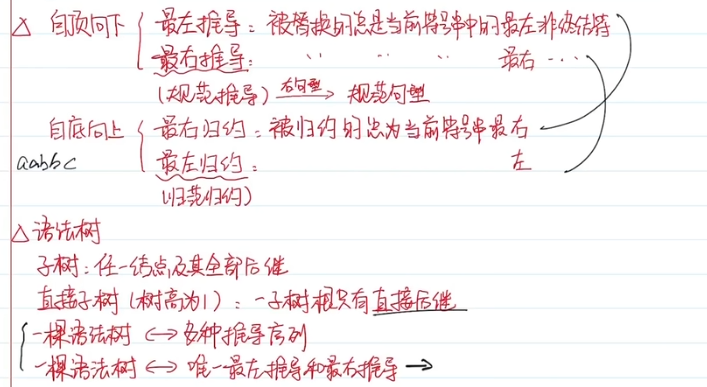 △ 自顶向下 { 最左推导：被替换的总是当前符号串中的最左非终结符
最右推导： 〃 〃 〃 最右 ····
(规范推导) 右句型→ 规范句型
自底向上 { 最右归约：被归约的总为当前符号串最右
aabbc 最左归约： 左
(归范归约)
△ 语法树
子树：任一结点及其全部后继
直接子树(树高为1)：一子树根只有直接后继
一棵语法树 ↔ 多种推导序列
一棵语法树 ↔ 唯一最左推导和最右推导 →